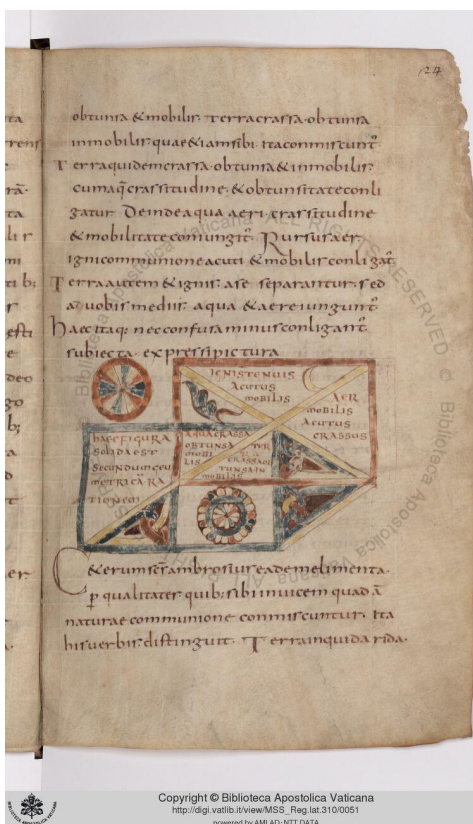 24
obtunsa & mobilis. Terra crassa. obtunsa
inmobilis quae & iam sibi. ita conmiscunt᷑
Terra quidem crassa. obtunsa & inmobilis.
cum aq̄ crassitudine. & obtunsitate conli
gatur. Deinde aqua aeri. crassitudine
& mobilitate coniungit᷑. Rursus aer
igni communione acuti & mobilis conligat᷑
Terra autem & ignis. a se separantur. sed
a duobis mediis. aqua & aere iungunt᷑
Haec itaq; nec confusa minus conligant᷑
subiecta. expressi pictura
IGNIS TENUIS
ACUTUS
MOBILIS
AER
MOBILIS
ACUTUS
CRASSUS
HAEC FIGURA
SOLIDA EST
SECUNDUM GEU
METRICA RA
TIONEM
AQUA CRASSA
OBTUNSA
MOBI
LIS
CRASSA OB
TUNSA IN
MOBILIS
C&erum sc̄s ambrosius eadem elimenta.
p̱ qualitates quib; sibi inuicem quadā
naturae communione conmiscuntur. ita
his uerbis distinguit. Terra inquid arida.
Copyright © Biblioteca Apostolica Vaticana
http://digi.vatlib.it/view/MSS_Reg.lat.310/0051
powered by AMLAD-NTT DATA